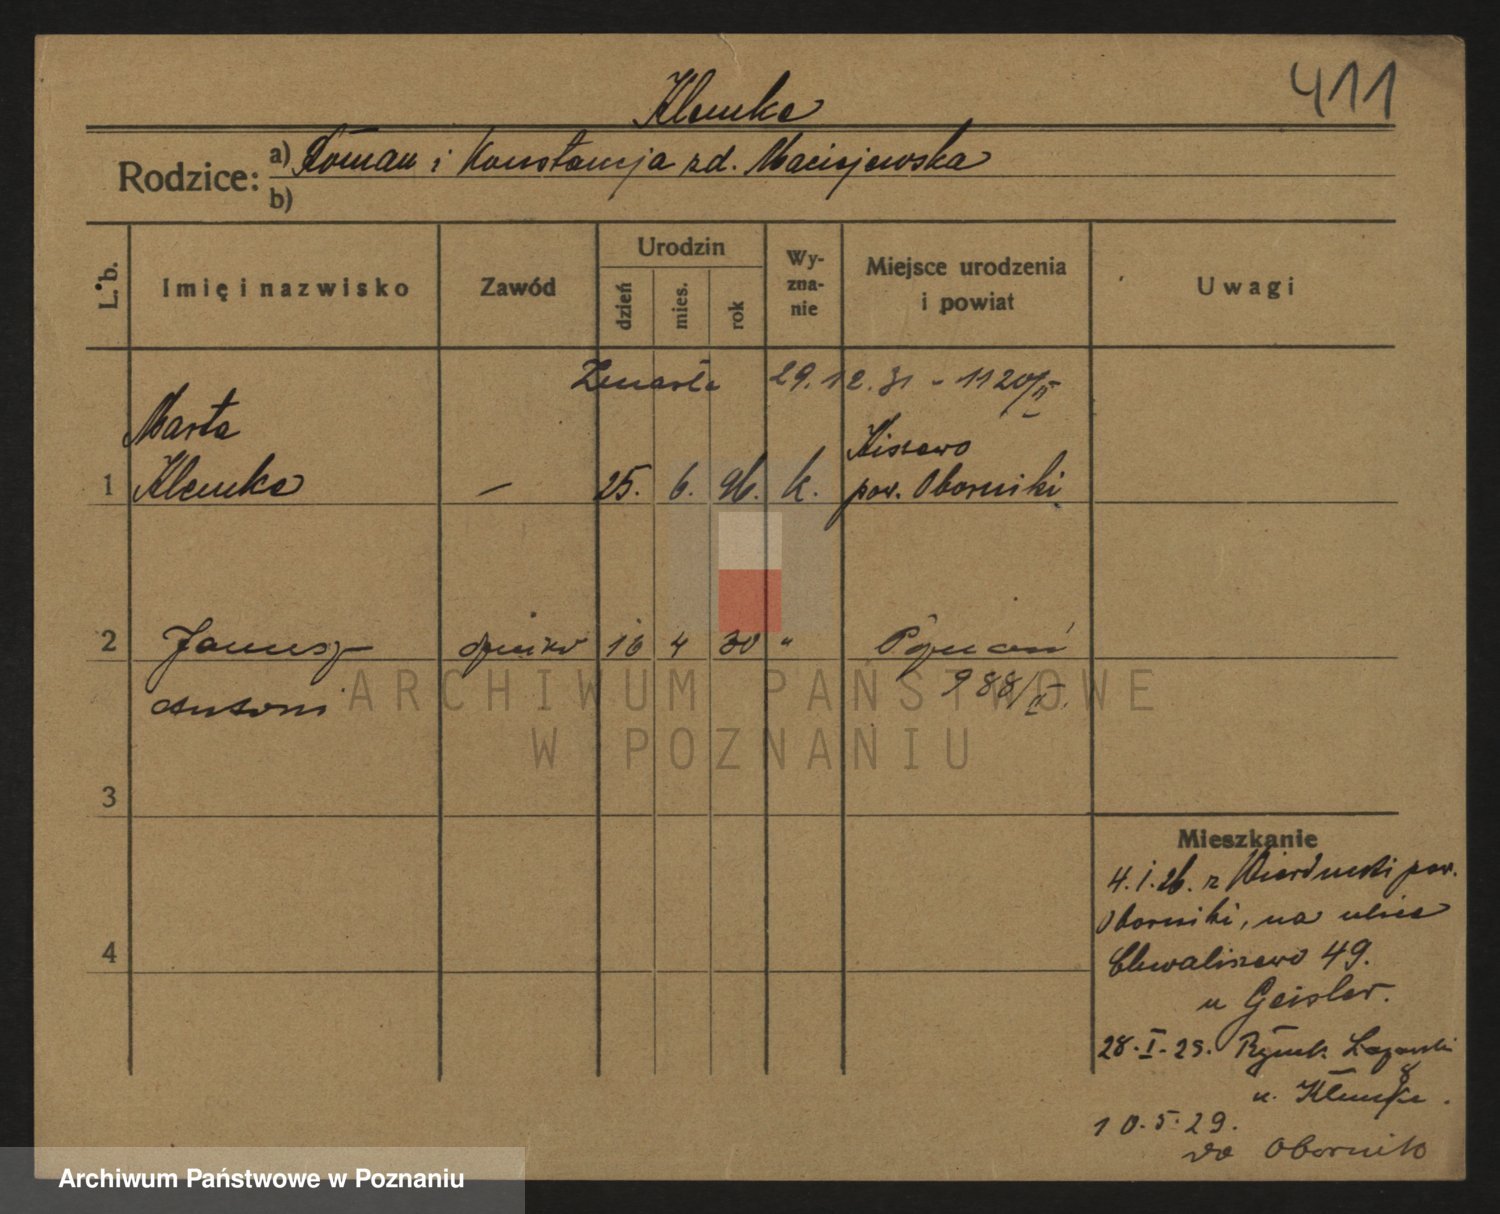 411
Klemke
Rodzice: a) Roman i Konstancja zd. Maciejewska
b)
L. b.
Imię i nazwisko
Zawód
Urodzin
dzień
mies.
rok
Wy-
zna-
nie
Miejsce urodzenia
i powiat
Uwagi
Zmarła 29.12.31 - 1120/II
Marta
Kiszewo
1 Klemke — 25. 6. 96. k. pow. Oborniki
2 Janusz 16 4 30 " Poznań
Antoni 988/II.
3
4
Mieszkanie
4.1.26. z pow.
Oborniki, na ulice
Chwaliszewo 49.
u Geisler.
28.I.29. Rynek Łazarski
8
u. Klemke.
10.5.29.
do Obornik
ARCHIWUM PAŃSTWOWE
W POZNANIU
Archiwum Państwowe w Poznaniu